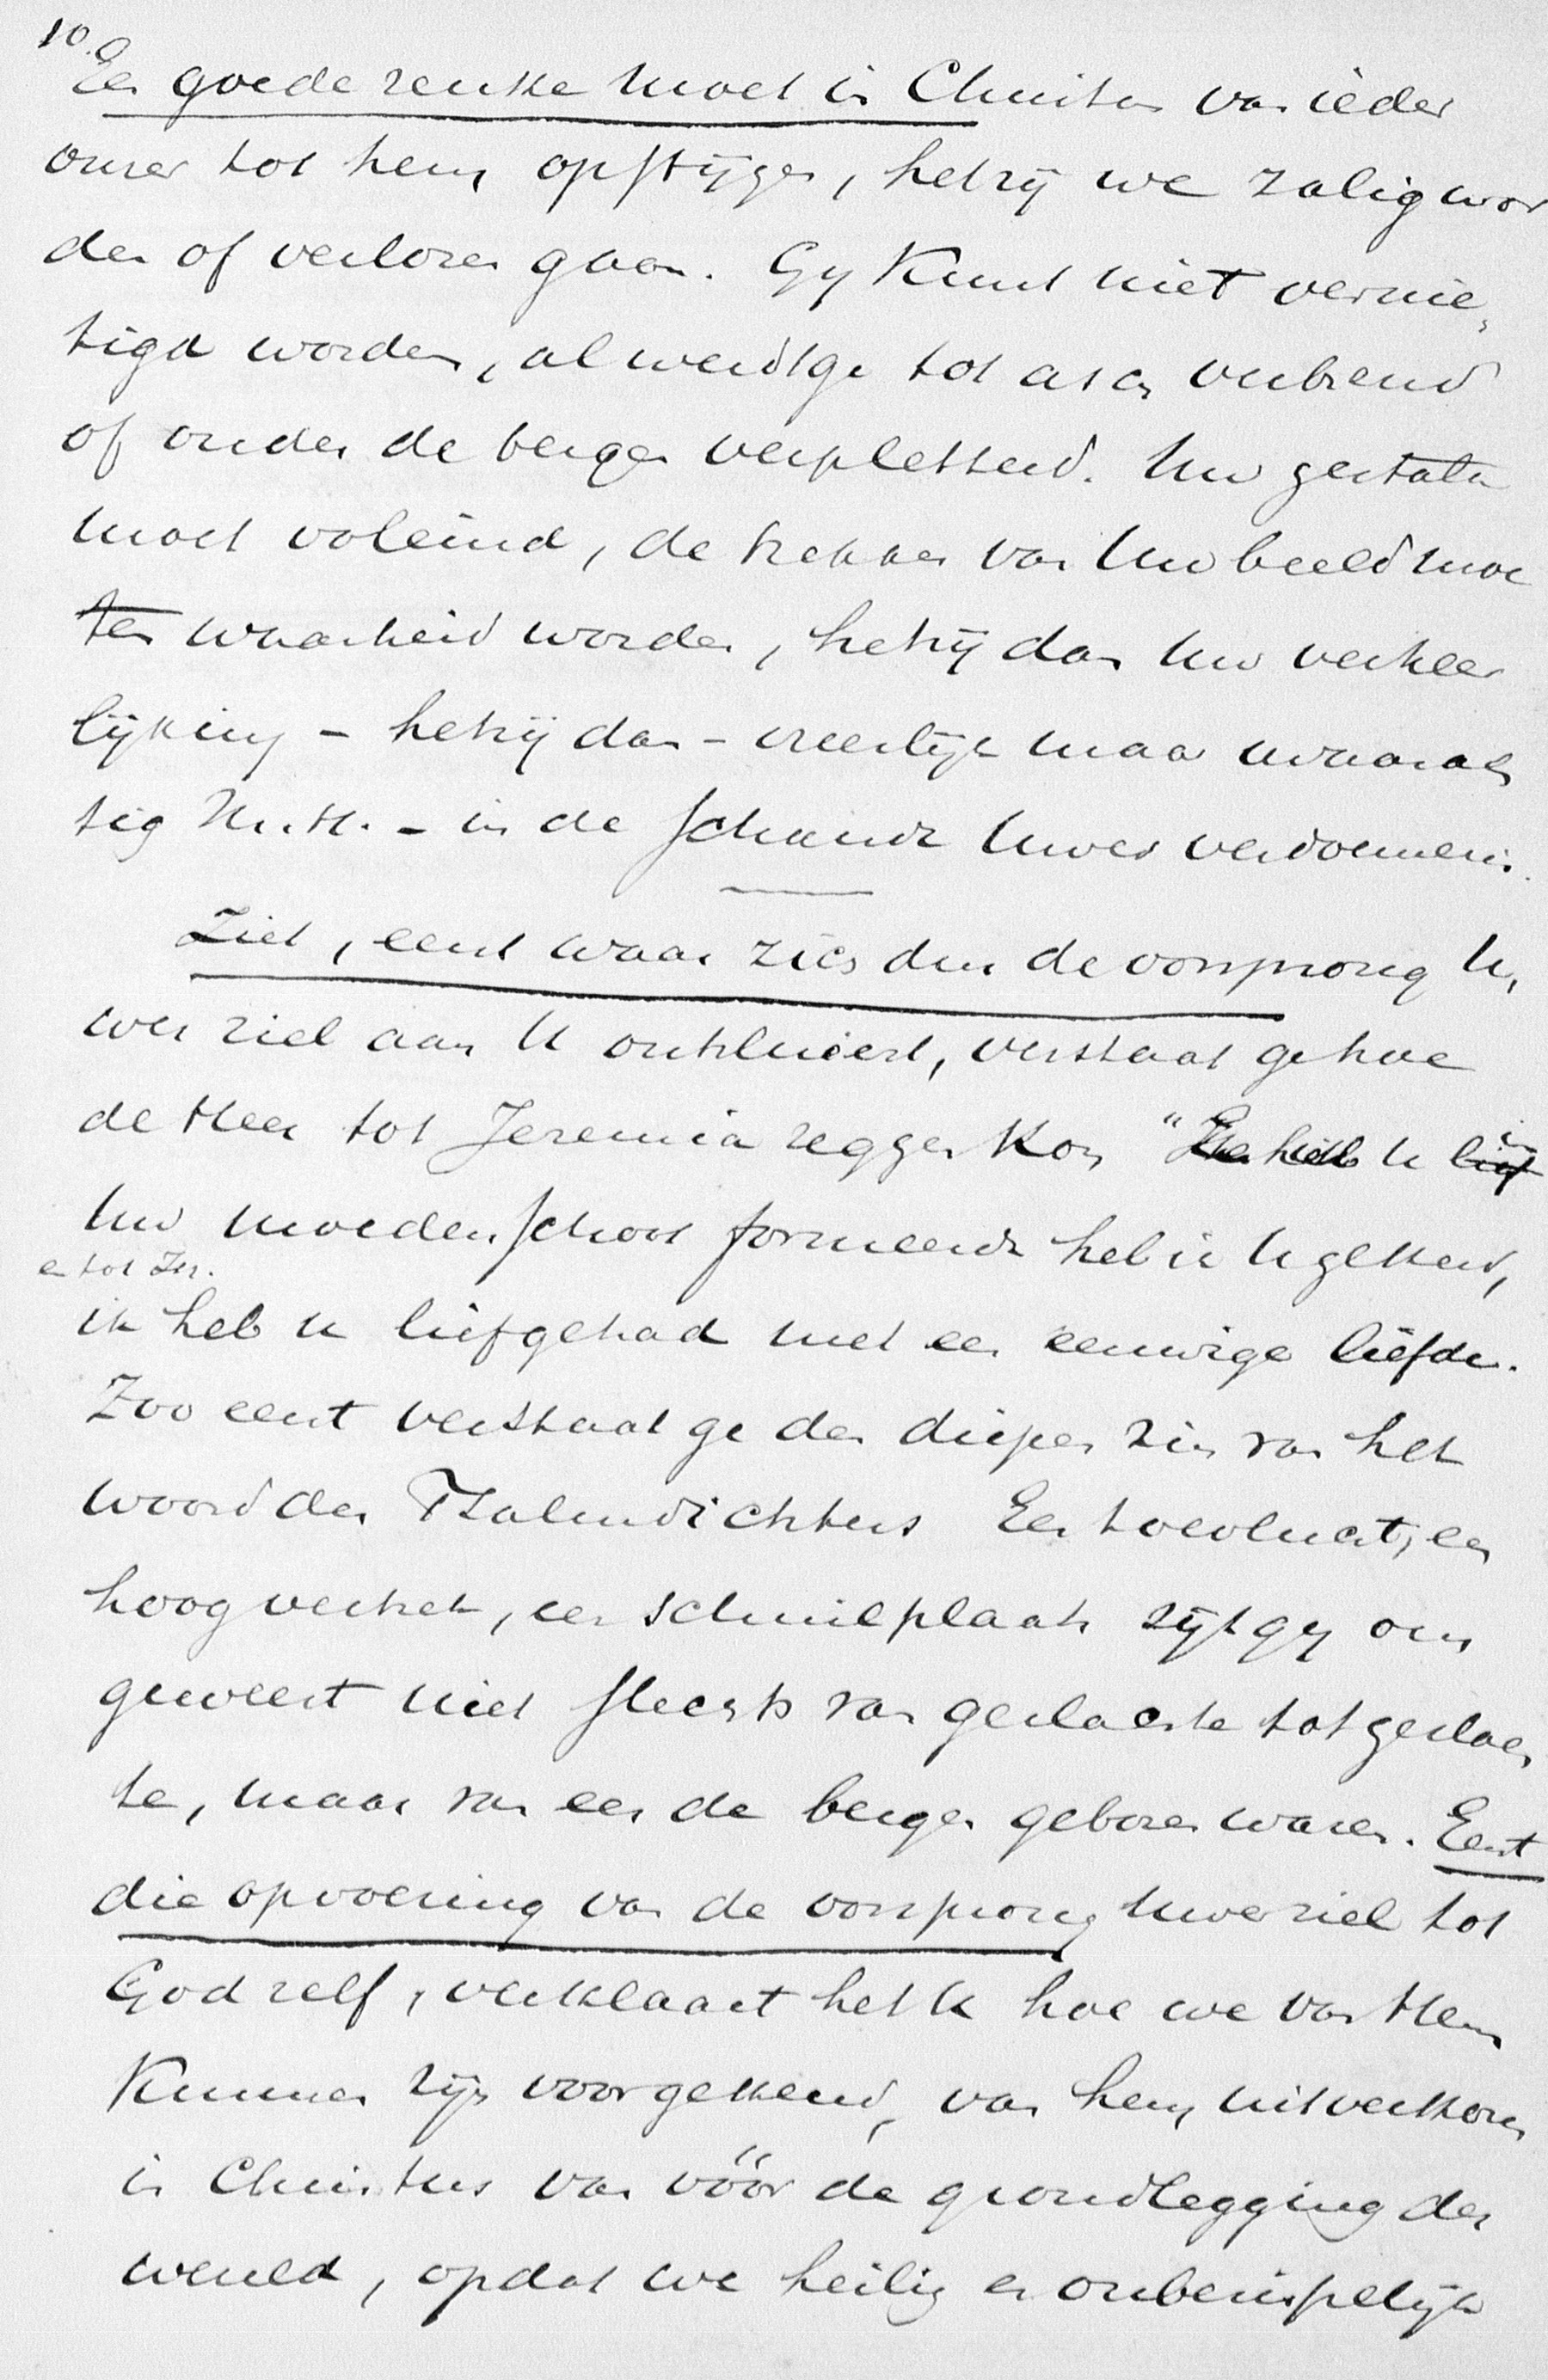 10.
Een goede reuke moet in Christus van ieder
onzer tot hem opstijgen, hetzij we zalig wor
den of verloren gaan. Gy kunt niet vernie,
tigd worden, al werdt ge tot asch verbrand
of onder de bergen verpletterd. Uw gestalte
moet voleind, de trekken van Uw beeld moe
ten waarheid worden, hetzij dan Uw verheer
lijking – hetzij dan – vreeslijk maar waarach
tig M. H. – in de schande Uwer verdoemenis.
Ziet, eerst waar zich dus de oorsprong U,
wer ziel aan U ontsluiert, verstaat ge hoe
de Heer tot Jeremia zeggen kon " u in
Uw moederschoot formeerde heb ik U gekend,
en tot Isr.
ik heb u liefgehad met een eeuwige liefde.
Zoo eerst verstaat ge den diepen zin van het
woord des Psalmdichters Een toevlucht, een
hoog vertrek, een schuilplaats zijt gy ons
geweest niet slechts van geslachte tot geslach
te, maar van eer de bergen geboren waren. Eerst
die opvoering van de oorsprong Uwer ziel tot
God zelf, verklaart het U hoe we van Hem
kunnen zijn voorgekend, van hem uitverkoren
in Christus van vóór de grondlegging der
wereld, opdat we heilig en onberispelijk